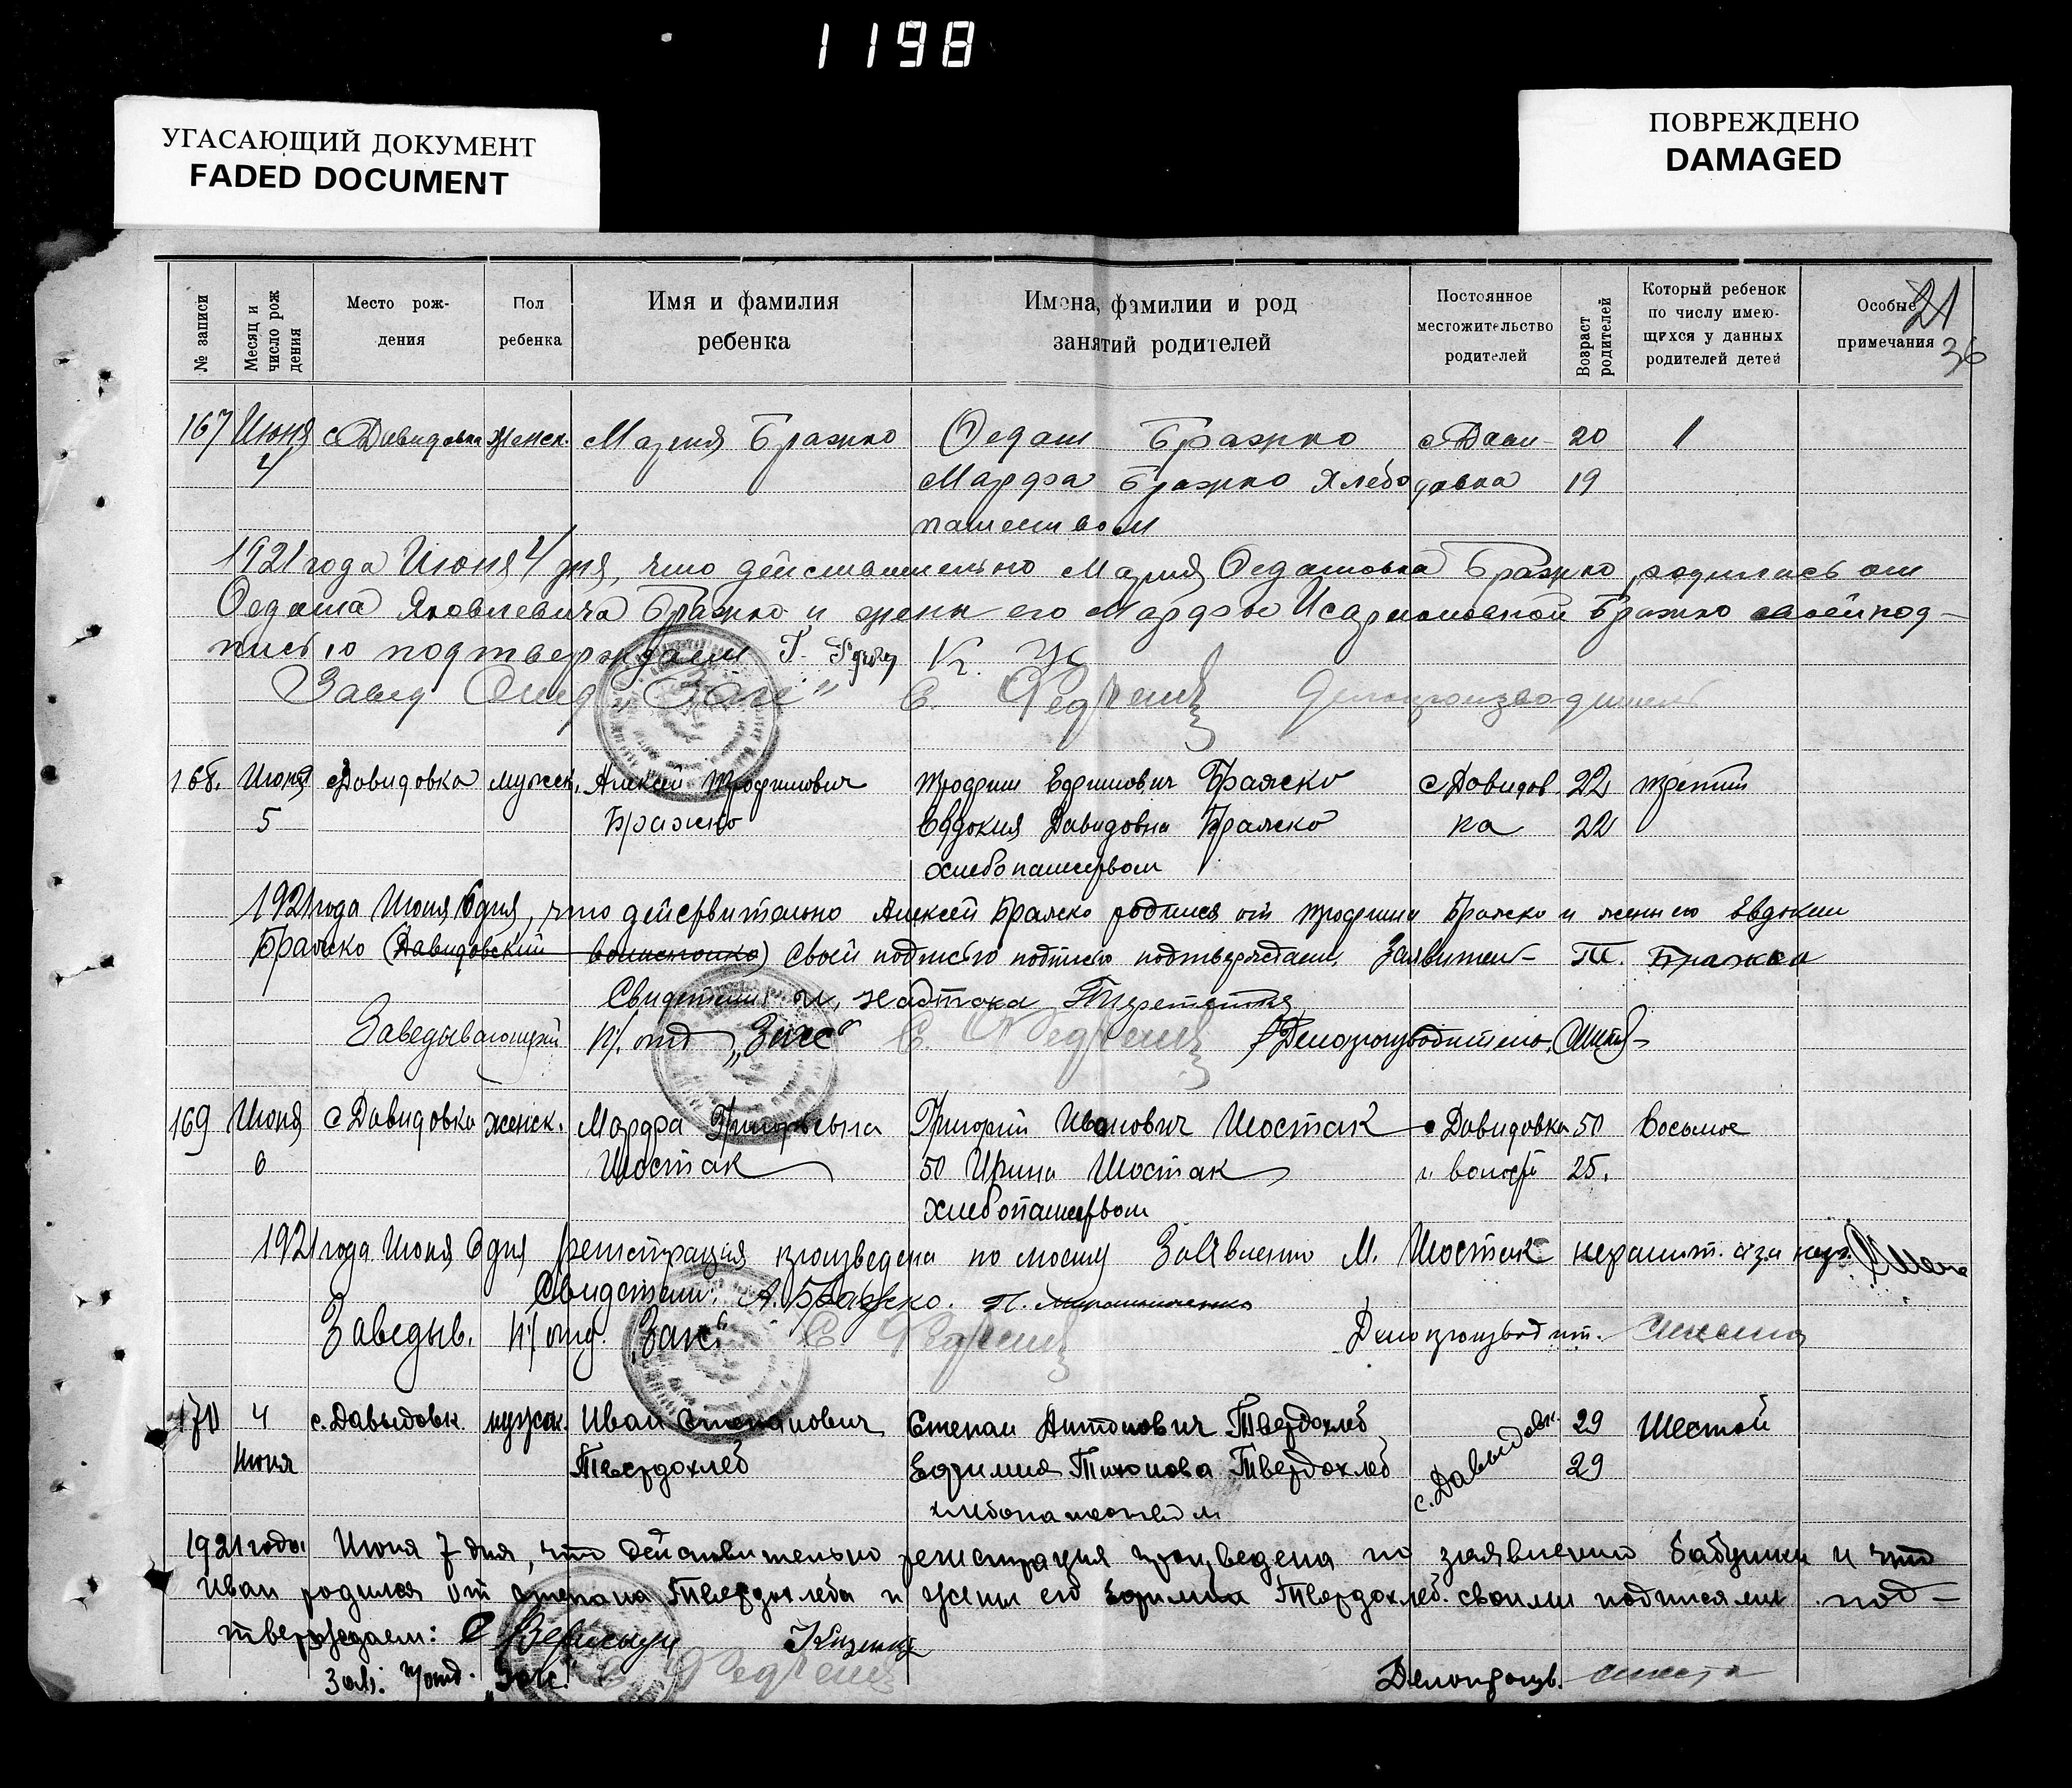 1198
УГАСАЮЩИЙ ДОКУМЕНТ
FADED DOCUMENT
ПОВРЕЖДЕНО
DAMAGED
№ записи
Месяц и число рождения
Место рож-
дения
Пол
ребенка
Имя и фамилия
ребенка
Имена, фамилии и род
занятий родителей
Постоянное
местожительство
родителей
Возраст родителей
Который ребенок
по числу имею-
щихся у данных
родителей детей
Особые
примечания
21
36
167 Июня с Давидовка женск. Мария Бражко Федот Бражко с Дави- 20 1
4 Марфа Бражко Хлебо довка 19
пашеством
1921 года Июня 4 дня, что действительно Мария Бражко родилась от
Яковлевича Бражко и жены его Марфы Бражко своей под-
писью подтверждаем
Завед Отд „Загс“ С. Делопроизводитель
168. Июня с Давидовка мужск. Алексей Трофимович Трофим Ефимович Бражко с Давидов 22 третий
5 Бражко Евдокия Давидовна Бражко ка 22
хлебопашеством
1921 года Июня 6 дня, что действительно Алексей Бражко родился от Трофима Бражко и жены его Евдокии
Бражко (Давидовский) Своей подписью подтверждаем. Т. Бражко
Свидетели
Заведывающий П/. отд „Загс“ С. Делопроизводитель.
169 Июня с Давидовка женск. Марфа Григорьевна Григорий Иванович Шостак с Давидовка 50 Восьмое
6 Шостак 50 Ирина Шостак и волости 25.
хлебопашеством
1921 года Июня 6 дня регистрация произведена по моему Заявлению М. Шостак
Свидетели: А. Бражко.
Заведыв. П/ отд. „Загс“ С. Делопроизводит.
170 4 с. Давыдовк. мужск. Иван Степанович Степан Антонович Твердохлеб с. Давыдовк. 29 Шестой
Июня Твердохлеб Ефимия Тихонова Твердохлеб 29
хлебопашеством
1921 года Июня 7 дня, что действительно регистрация произведена по заявлению бабушки и что
Иван родился от Степана Твердохлеба и жены его Ефимии Твердохлеб. своими подписями под-
тверждаем:
Зав. П/отд. Загс. Делопроизв.